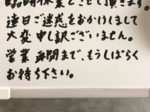 臨時休業とさせて頂きます。
連日ご迷惑をおかけしまして
大変申し訳ございません。
営業再開まで、もうしばらく
お待ち下さい。